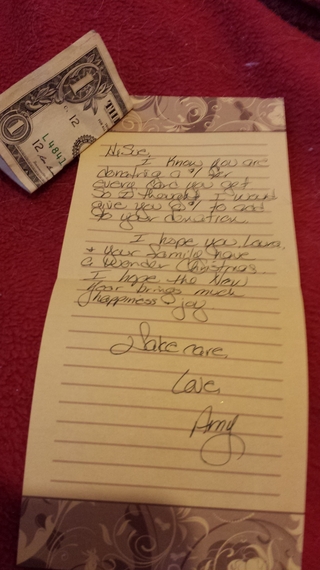 1
12
THE
L 4842
12
1
Hi Sue,
I know you are
donating a $1 for
every card you get
so I thought I would
give you $1 to add
to your donation.
I hope you, Laura,
+ your family have
a wonder Christmas
I hope the New
Year brings much
happiness + joy
Take care,
Love,
Amy